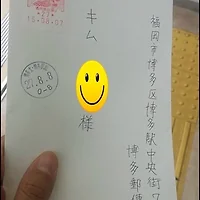 福岡市博多区博多駅中央街
博多郵便
キム 様